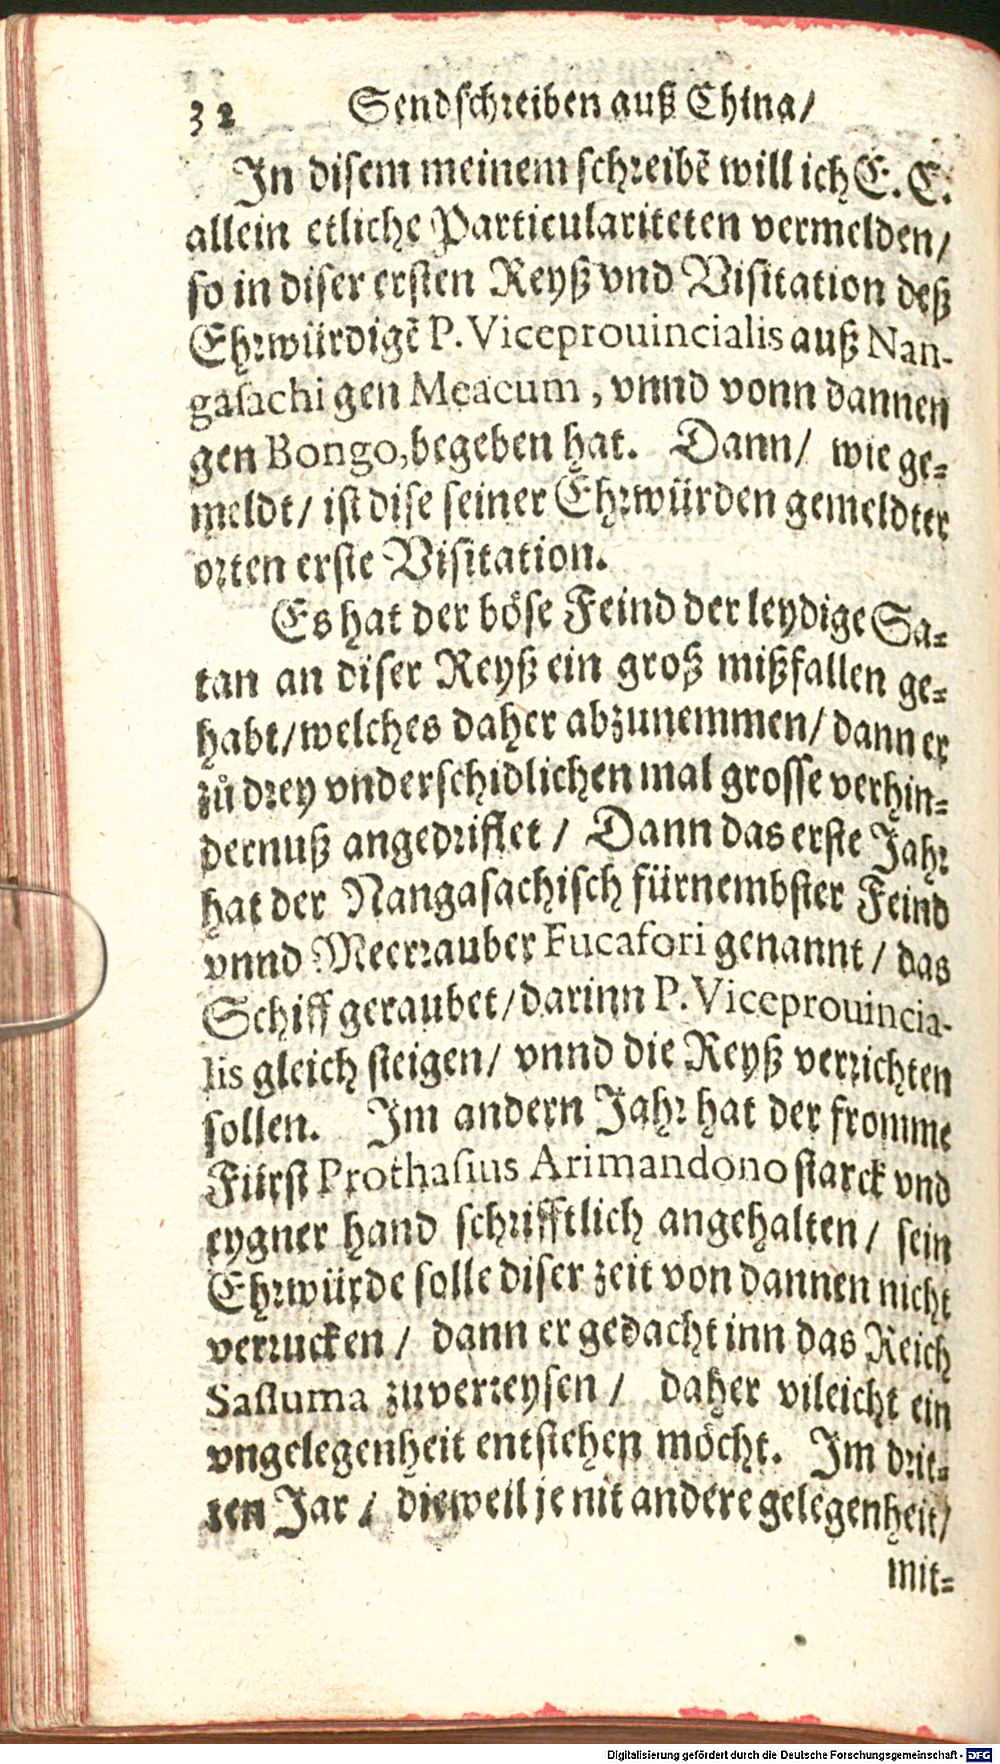 32 Sendschreiben auß China/
In disem meinem schreibẽ will ich E. E.
allein etliche Particulariteten vermelden/
so in diser ersten Reyß vnd Visitation deß
Ehrwürdigẽ P. Viceprouincialis auß Nan-
gasachi gen Meacum, vnnd vonn dannen
gen Bongo, begeben hat. Dann/ wie ge-
meldt/ ist dise seiner Ehrwürden gemeldter
orten erste Visitation.
Es hat der böse Feind der leydige Sa-
tan an diser Reyß ein groß mißfallen ge-
habt/ welches daher abzunemmen/ dann er
zů drey vnderschidlichen mal grosse verhin-
dernuß angedrifflet/ Dann das erste Jahr
hat der Nangasachisch fürnembster Feind
vnnd Meerrauber Fucafori genannt/ das
Schiff geraubet/ darinn P. Viceprouincia-
lis gleich steigen/ vnnd die Reyß verrichten
sollen. Im andern Jahr hat der fromme
Fürst Prothasius Arimandono starck vnd
eygner hand schrifftlich angehalten/ sein
Ehrwürde solle diser zeit von dannen nicht
verrucken/ dann er gedacht inn das Reich
Sassuma zuverreysen/ daher vileicht ein
vngelegenheit entstehen möcht. Im drit-
ten Jar/ dieweil je nit andere gelegenheit/
mit-
Digitalisierung gefördert durch die Deutsche Forschungsgemeinschaft - DFG